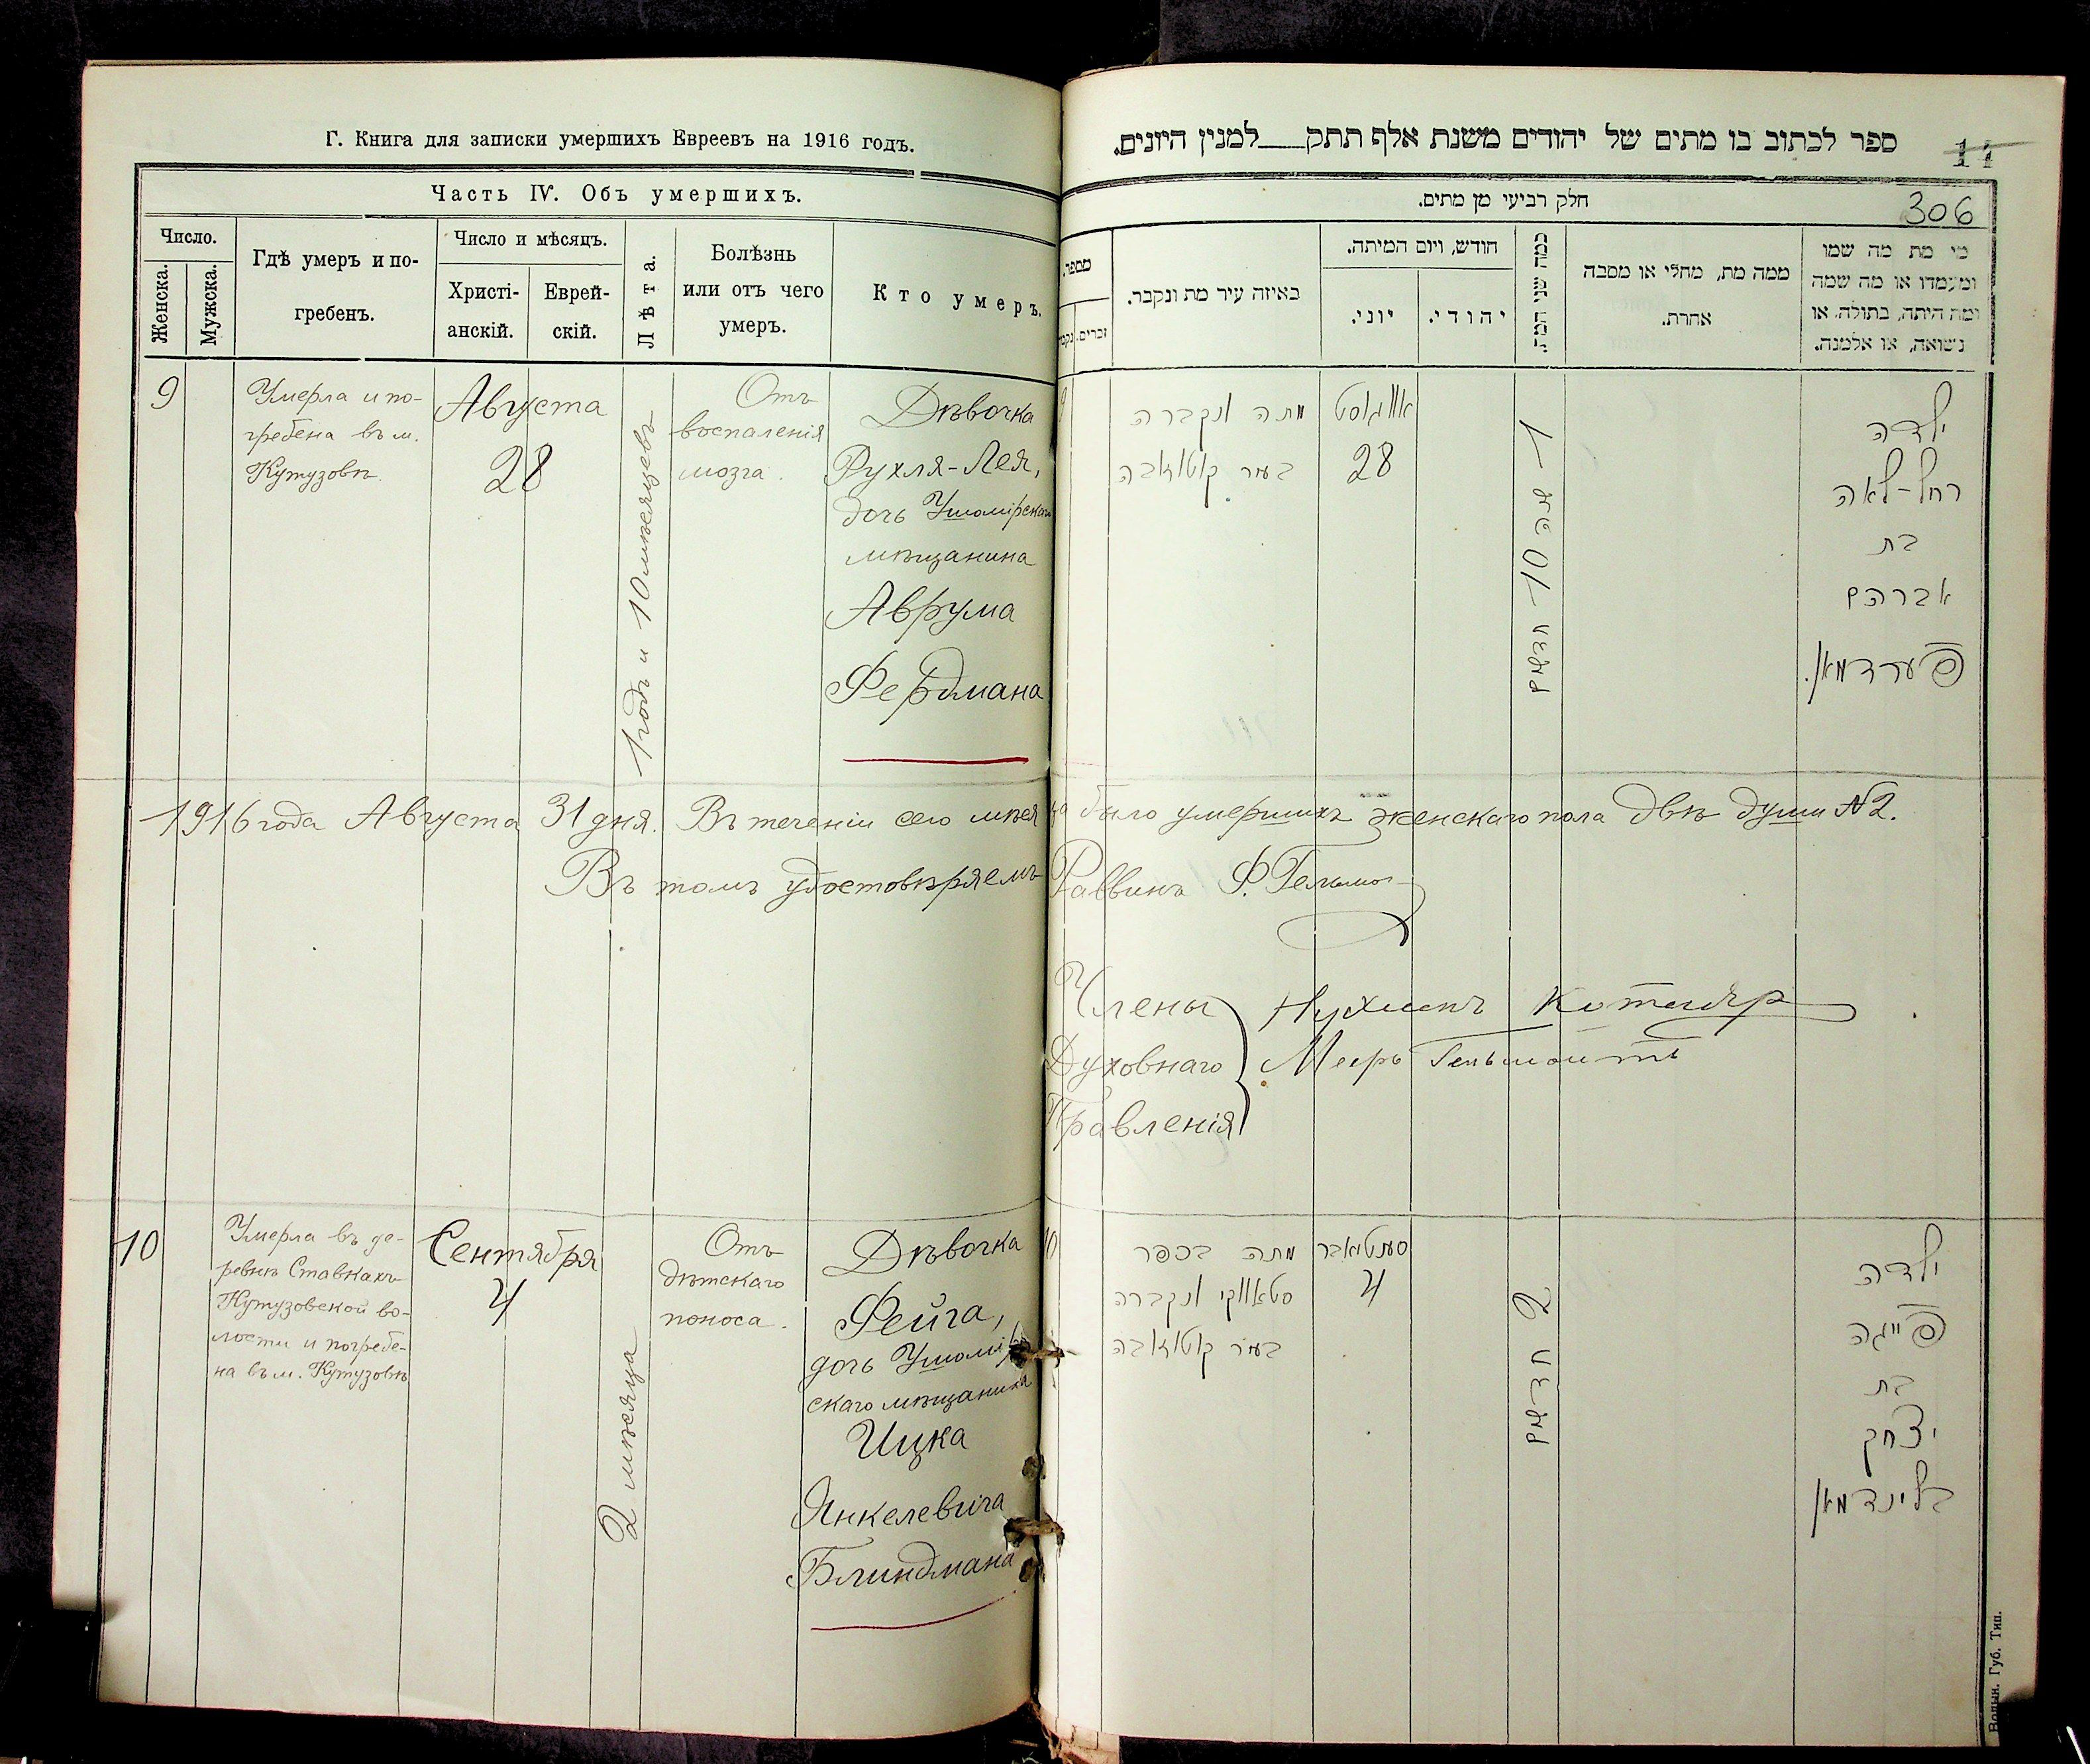 Г. Книга для записки умершихъ Евреевъ на 1916 годъ.
Часть IV. Объ умершихъ.
Число.
Женска.
Мужска.
Гдѣ умеръ и по-
гребенъ.
Число и мѣсяцъ.
Христі-
анскій.
Еврей-
скій.
Лѣта.
Болѣзнь
или отъ чего
умеръ.
Кто умеръ.
9
Умерла и по-
гребена въ м.
Кутузовѣ.
Августа
28
1 годъ и 10 мѣсяцевъ
Отъ
воспаленія
мозга.
Дѣвочка
Рухля-Лея,
дочь Ушомірскаго
мѣщанина
Аврума
Фердмана
1916 года Августа 31 дня. Въ теченіи сего мѣсяца было умершихъ женскаго пола двѣ души №2.
Въ томъ удостовѣряемъ Раввинъ Ф.
Члены
Духовнаго
Правленія
Нухимъ Котляр
Мееръ
10
Умерла въ де-
ревнѣ Ставкахъ
Кутузовской во-
лости и погребе-
на въ м. Кутузовѣ
Сентября
4
2 мѣсяца
Отъ
дѣтскаго
поноса.
Дѣвочка
Фейга,
дочь Ушомір
скаго мѣщанина
Ицка
Янкелевича
Блиндмана
ספר לכתוב בו מתים של יהודים משנת אלף תתק למנין היונים.
14
חלק רביעי מן מתים.
306
מספר.
זכרים.
נקב
באיזה עיר מת ונקבר.
חודש, ויום המיתה.
יוני.
יהודי.
כמה שני המת.
ממה מת, מחלי או מסבה
אחרת.
מי מת מה שמו
ומעמדו או מה שמה
ומה היתה, בתולה, או
נשואה, או אלמנה.
9
מתה ונקברה
בעיר קוטוזאבה
אווגוסט
28
1 שנה 10 חדשים
ילדה
רחל-לאה
בת
אברהם
פערדמאן.
10
מתה בכפר
סטאווקי ונקברה
בעיר קוטוזאבה
סעפטאבר
4
2 חדשים
ילדה
פייגה
בת
יצחק
בלינדמאן
Волын. Губ. Тип.